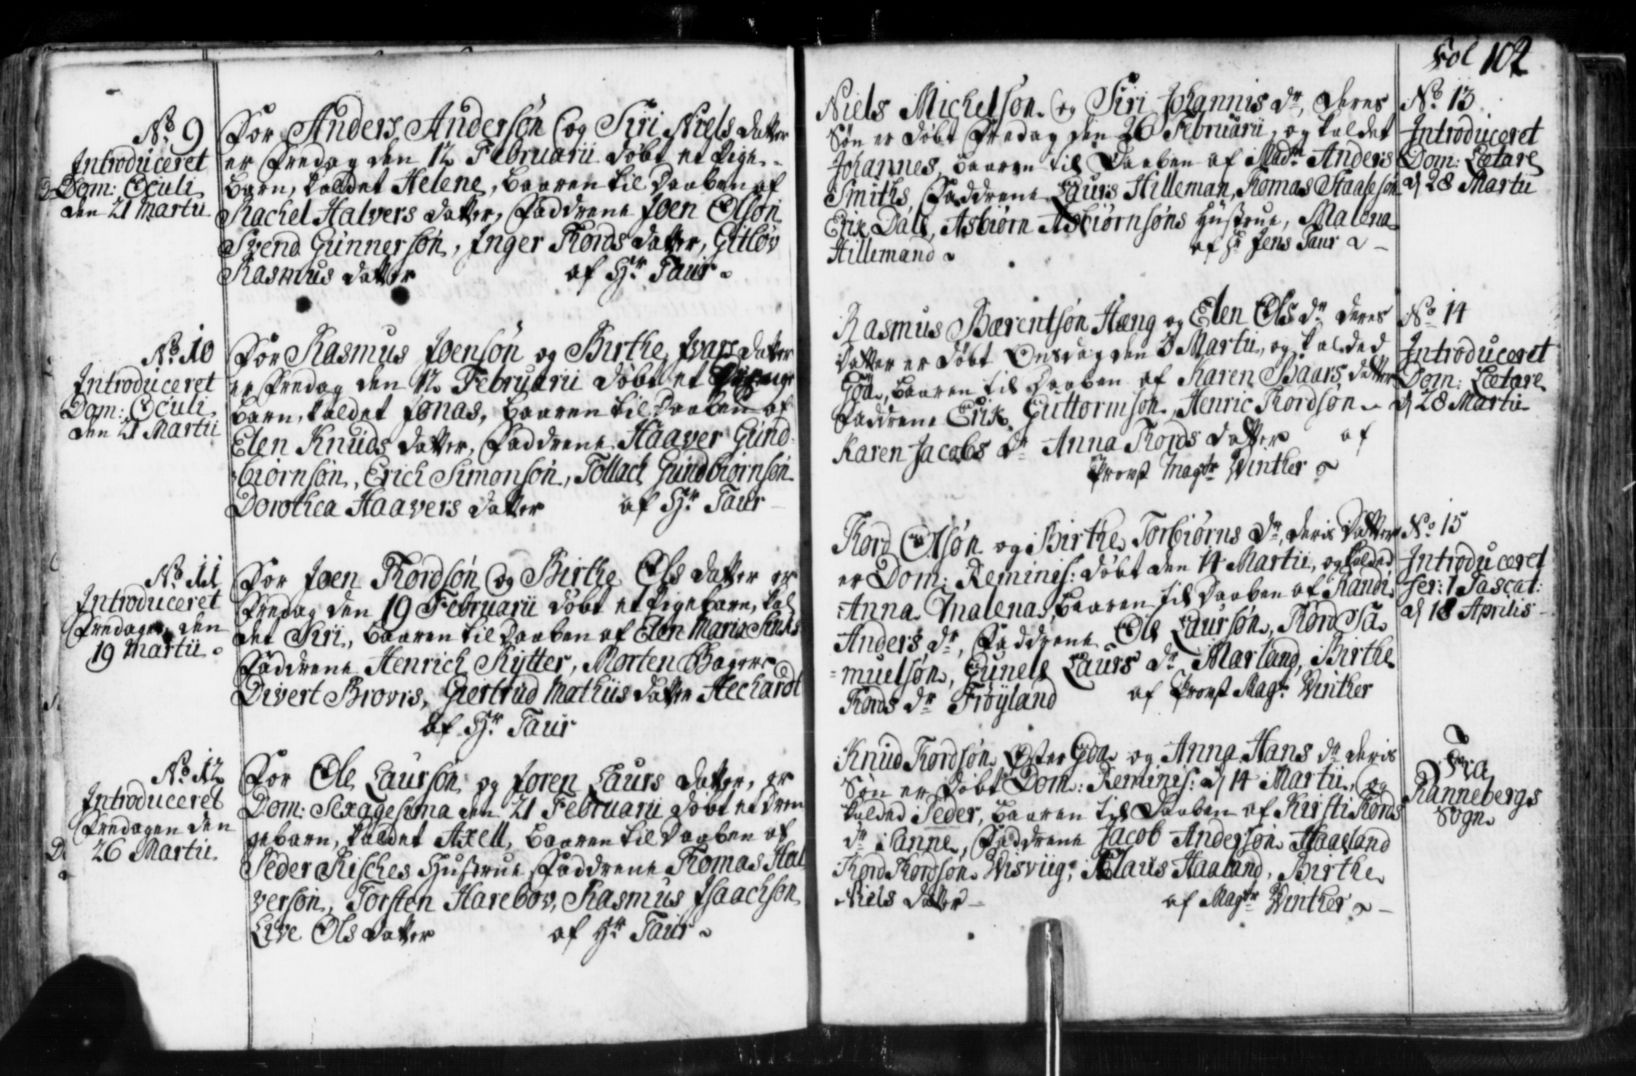 No 9
Introduceret
Dom: Oculi
den 21 Martii
For Anders Andersøn og Siri Niels datter
er Fredag den 12 Februarii døbt et Pige-
barn, kaldet Helene, baaren til daaben af
Rachel Halvers datter, Faddrene Joen Olsøn
Svend Gunnersøn, Inger Tords datter, Gitløv
Rasmus datter af Hr. Taur
No 10
Introduceret
Dom: Oculi
den 21 Martii
For Rasmus Joensøn og Birthe Ivars datter
er Fredag den 12 Februarii døbt et
barn, kaldet Jonas, baaren til daaben af
Elen Knuds datter, Faddrene Haaver Gund-
biørnsøn, Erich Simonsøn, Tollach Gundbiørnsøn
Dorothea Haavers datter af Hr. Taur
No 11
Introduceret
Fredagen den
19 Martii
For Joen Tordsøn og Birthe Ols datter er
Fredag den 19 Februarii døbt et Pigebarn, kal
det Siri, baaren til daaben af Elen Maria
Faddrene Henrich Rytter, Morten Bagers
Divert Brovis, Giertrud Mathiis datter Hechardt
af Hr. Taur
No 12
Introduceret
Fredagen den
26 Martii
For Ole Laursøn og Joren Laurs datter, er
Dom: Sexagesima den 21 Februarii døbt et dren
gebarn, kaldet Axell, baaren til daaben af
Peder Risches Hustrue, Faddrene Tomas Hal
versøn, Torsten Harebov, Rasmus Isaachsøn
Live Ols datter af Hr. Taur
Fol 102
Niels Michelsøn og Siri Johannis dr, deres
Søn er døbt Fredag den 26 Februarii, og kaldet
Johannes, baaren til Daaben af Madm Anders
Smiths, Faddrene Laurs Hilleman, Tomas Staalesøn
Erik Dall, Asbiørn Asbiørnsøns Hustrue, Malena
Hillemand af Hr Jens Taur
No 13
Introduceret
Dom: Lætare
d 28 Martii
Rasmus Bærentsøn Hæng og Elen Ols dr deres
datter er døbt Onsdag den 3 Martii, og kalded
baaren til Daaben af Karen Baars datter
Faddrene Erik Guttormsøn, Henric Tordsøn
Karen Jacobs dr Anna Tords datter af
Provst Magr Winther
No 14
Introduceret
Dom: Lætare
d 28 Martii
Tord Olsøn og Birthe Torbiørns dr, deris datter
er Dom: Reminis: døbt den 14 Martii, og kalded
Anna Malena, baaren til Daaben af Randi
Anders dr, Faddrene Ole Laursøn, Tord Sa-
muelsøn, Gunele Laurs dr Marland, Birthe
Tords dr Frøyland af Provst Magr Winther
No 15
Introduceret
fer: 1 Pascat:
d 18 Aprilis
Knud Tordsøn Øster Eda og Anna Hans dr deris
Søn er døbt Dom: Reminis: d 14 Martii, og
kalded Peder, baaren til Daaben af Kirsti Tords
dr Sanne, Faddrene Jacob Andersøn Haaland
Tord Tordsøn Wisviig, Klaus Haaland, Birthe
Niels datter af Magr Winther
Fra
Rannebergs
Sogn